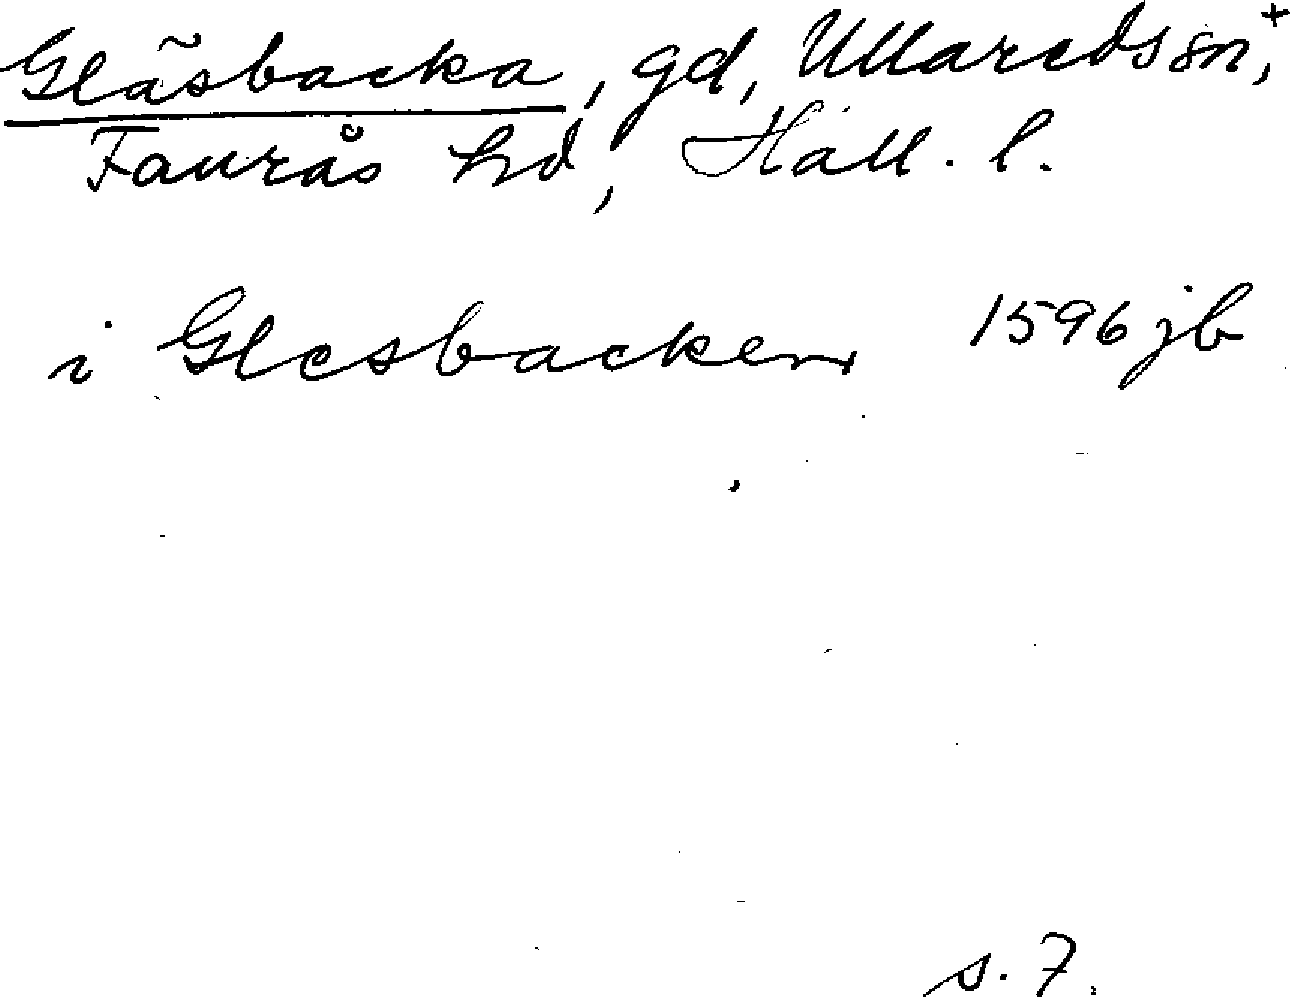 Gläsbacka, gd, Ullareds sn,+
Faurås hd, Hall. l.
i Glesbacken 1596 jb
s. 7.